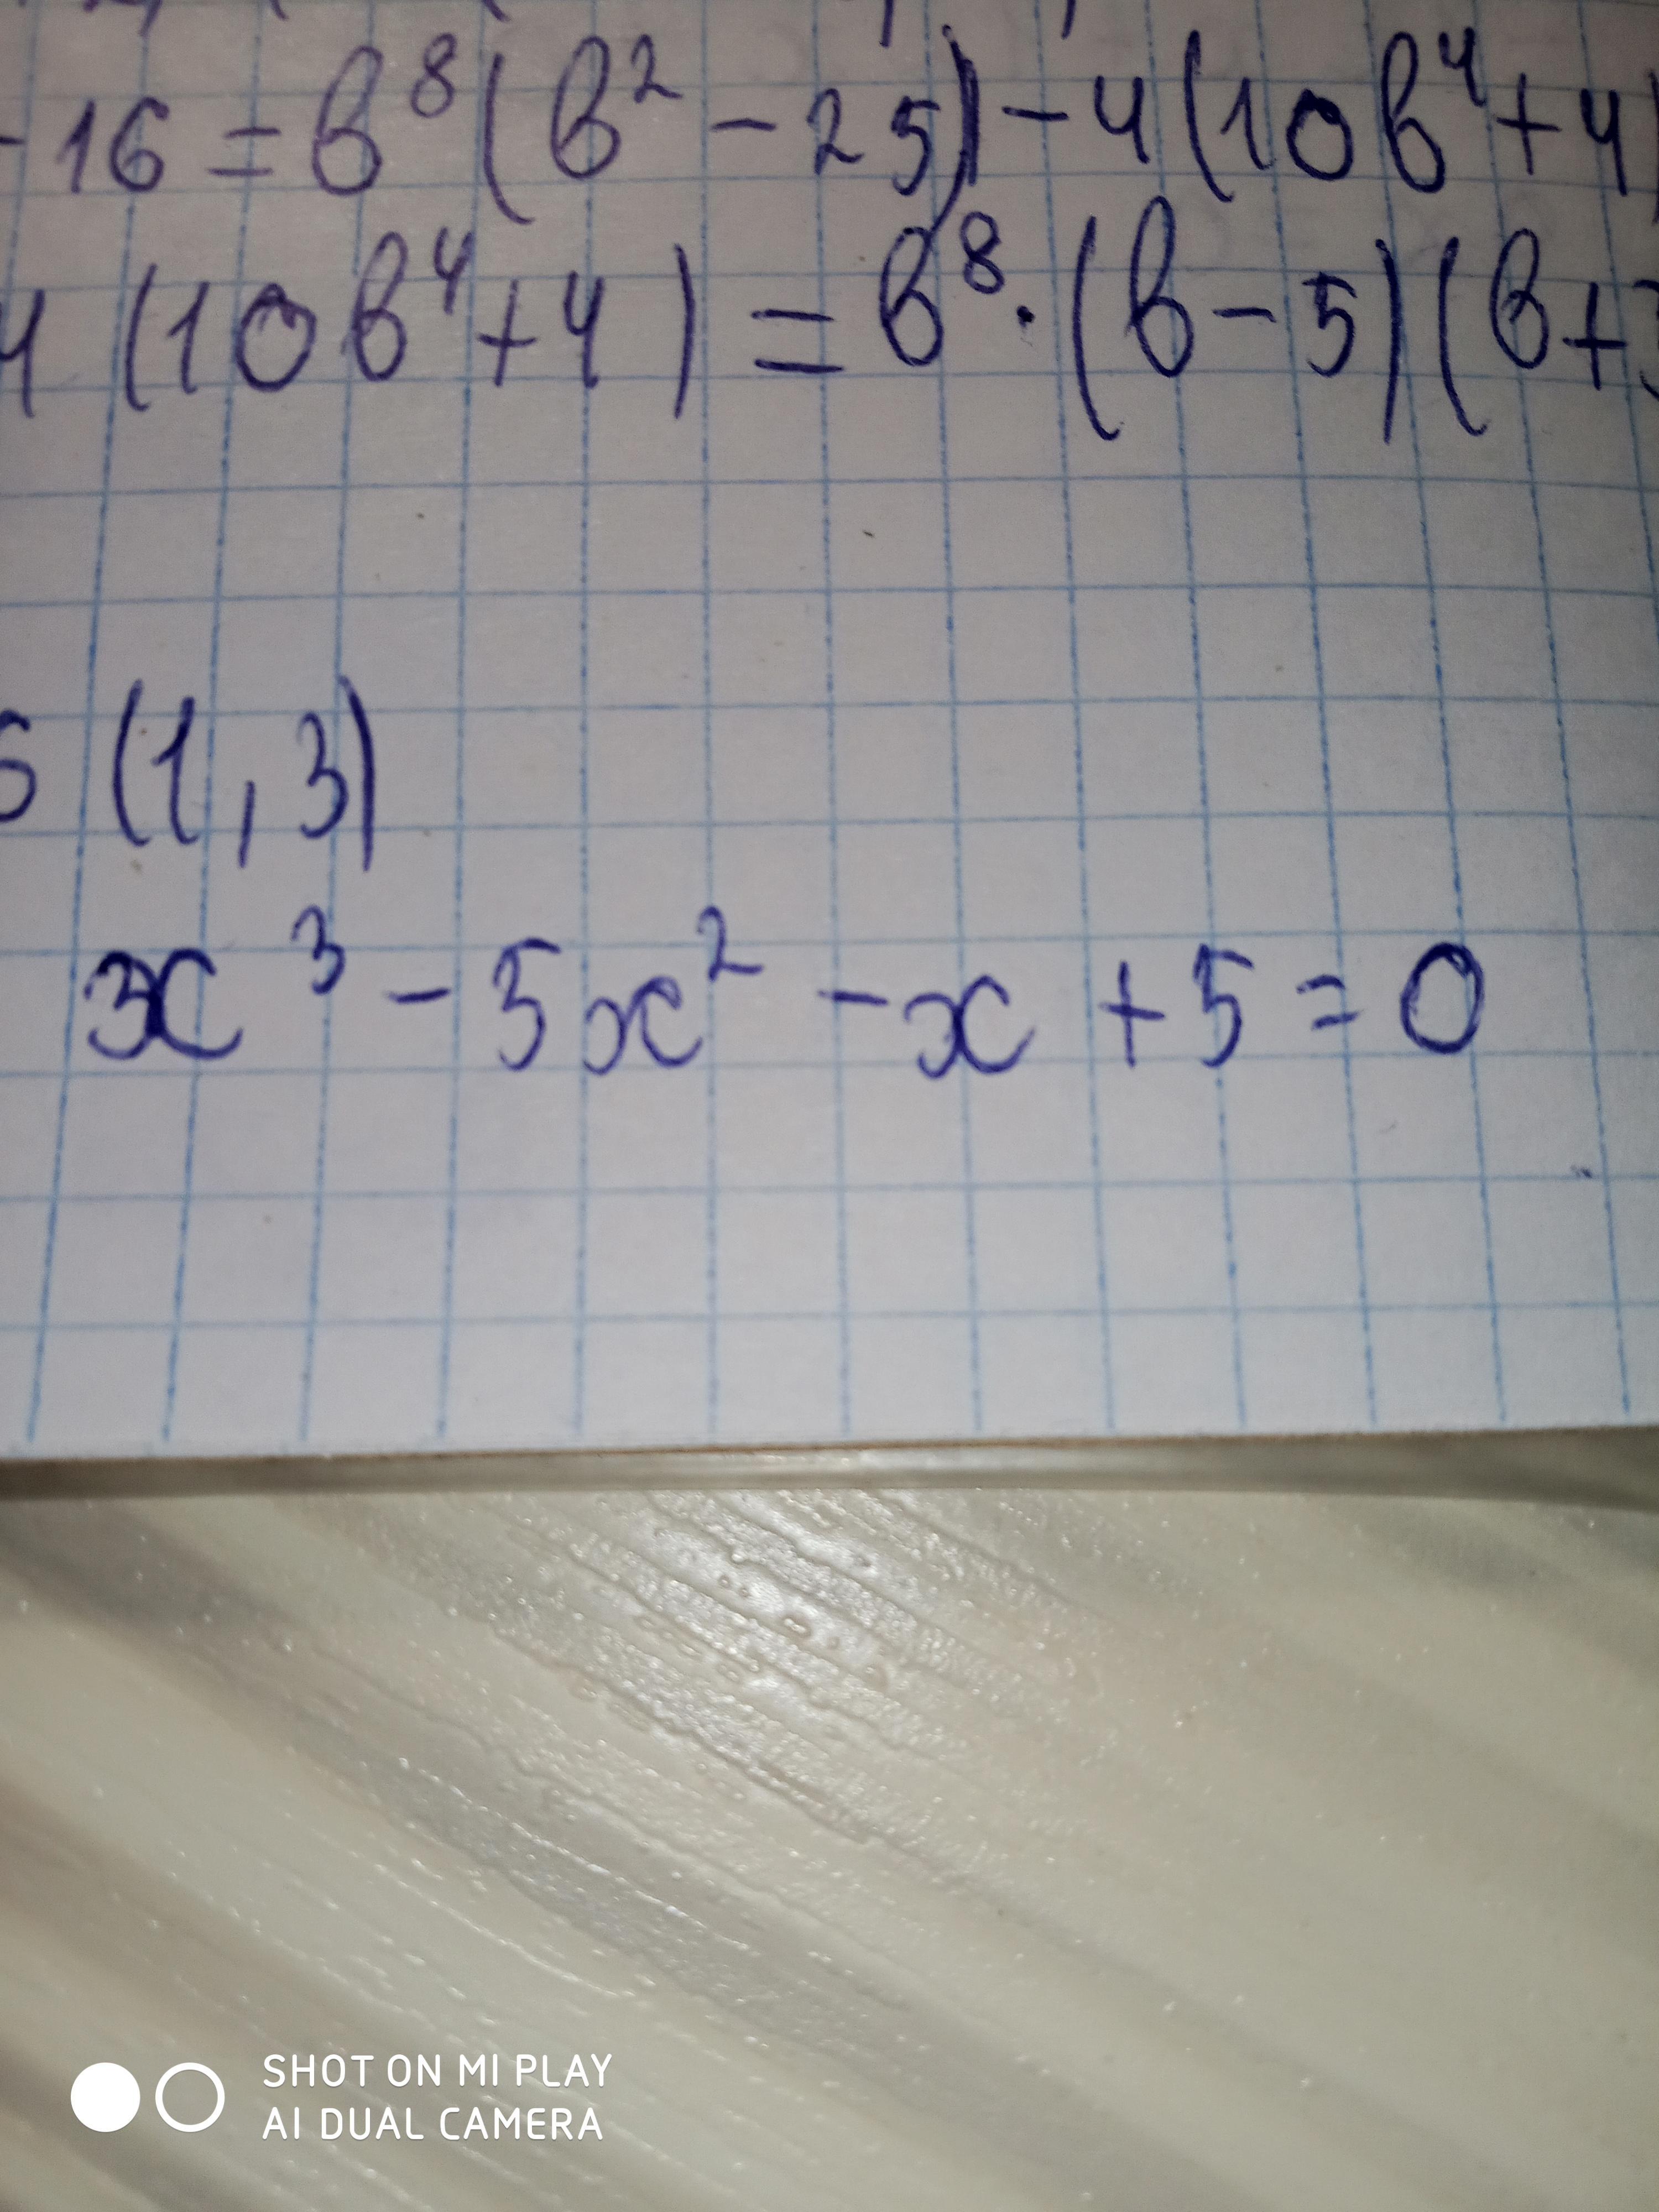 -16 = b⁸(b² - 25) - 4(10b⁴ + 4)
4 (10b⁴ + 4) = b⁸ · (b - 5)(b +
6 (1, 3)
x³ - 5x² - x + 5 = 0
SHOT ON MI PLAY
AI DUAL CAMERA